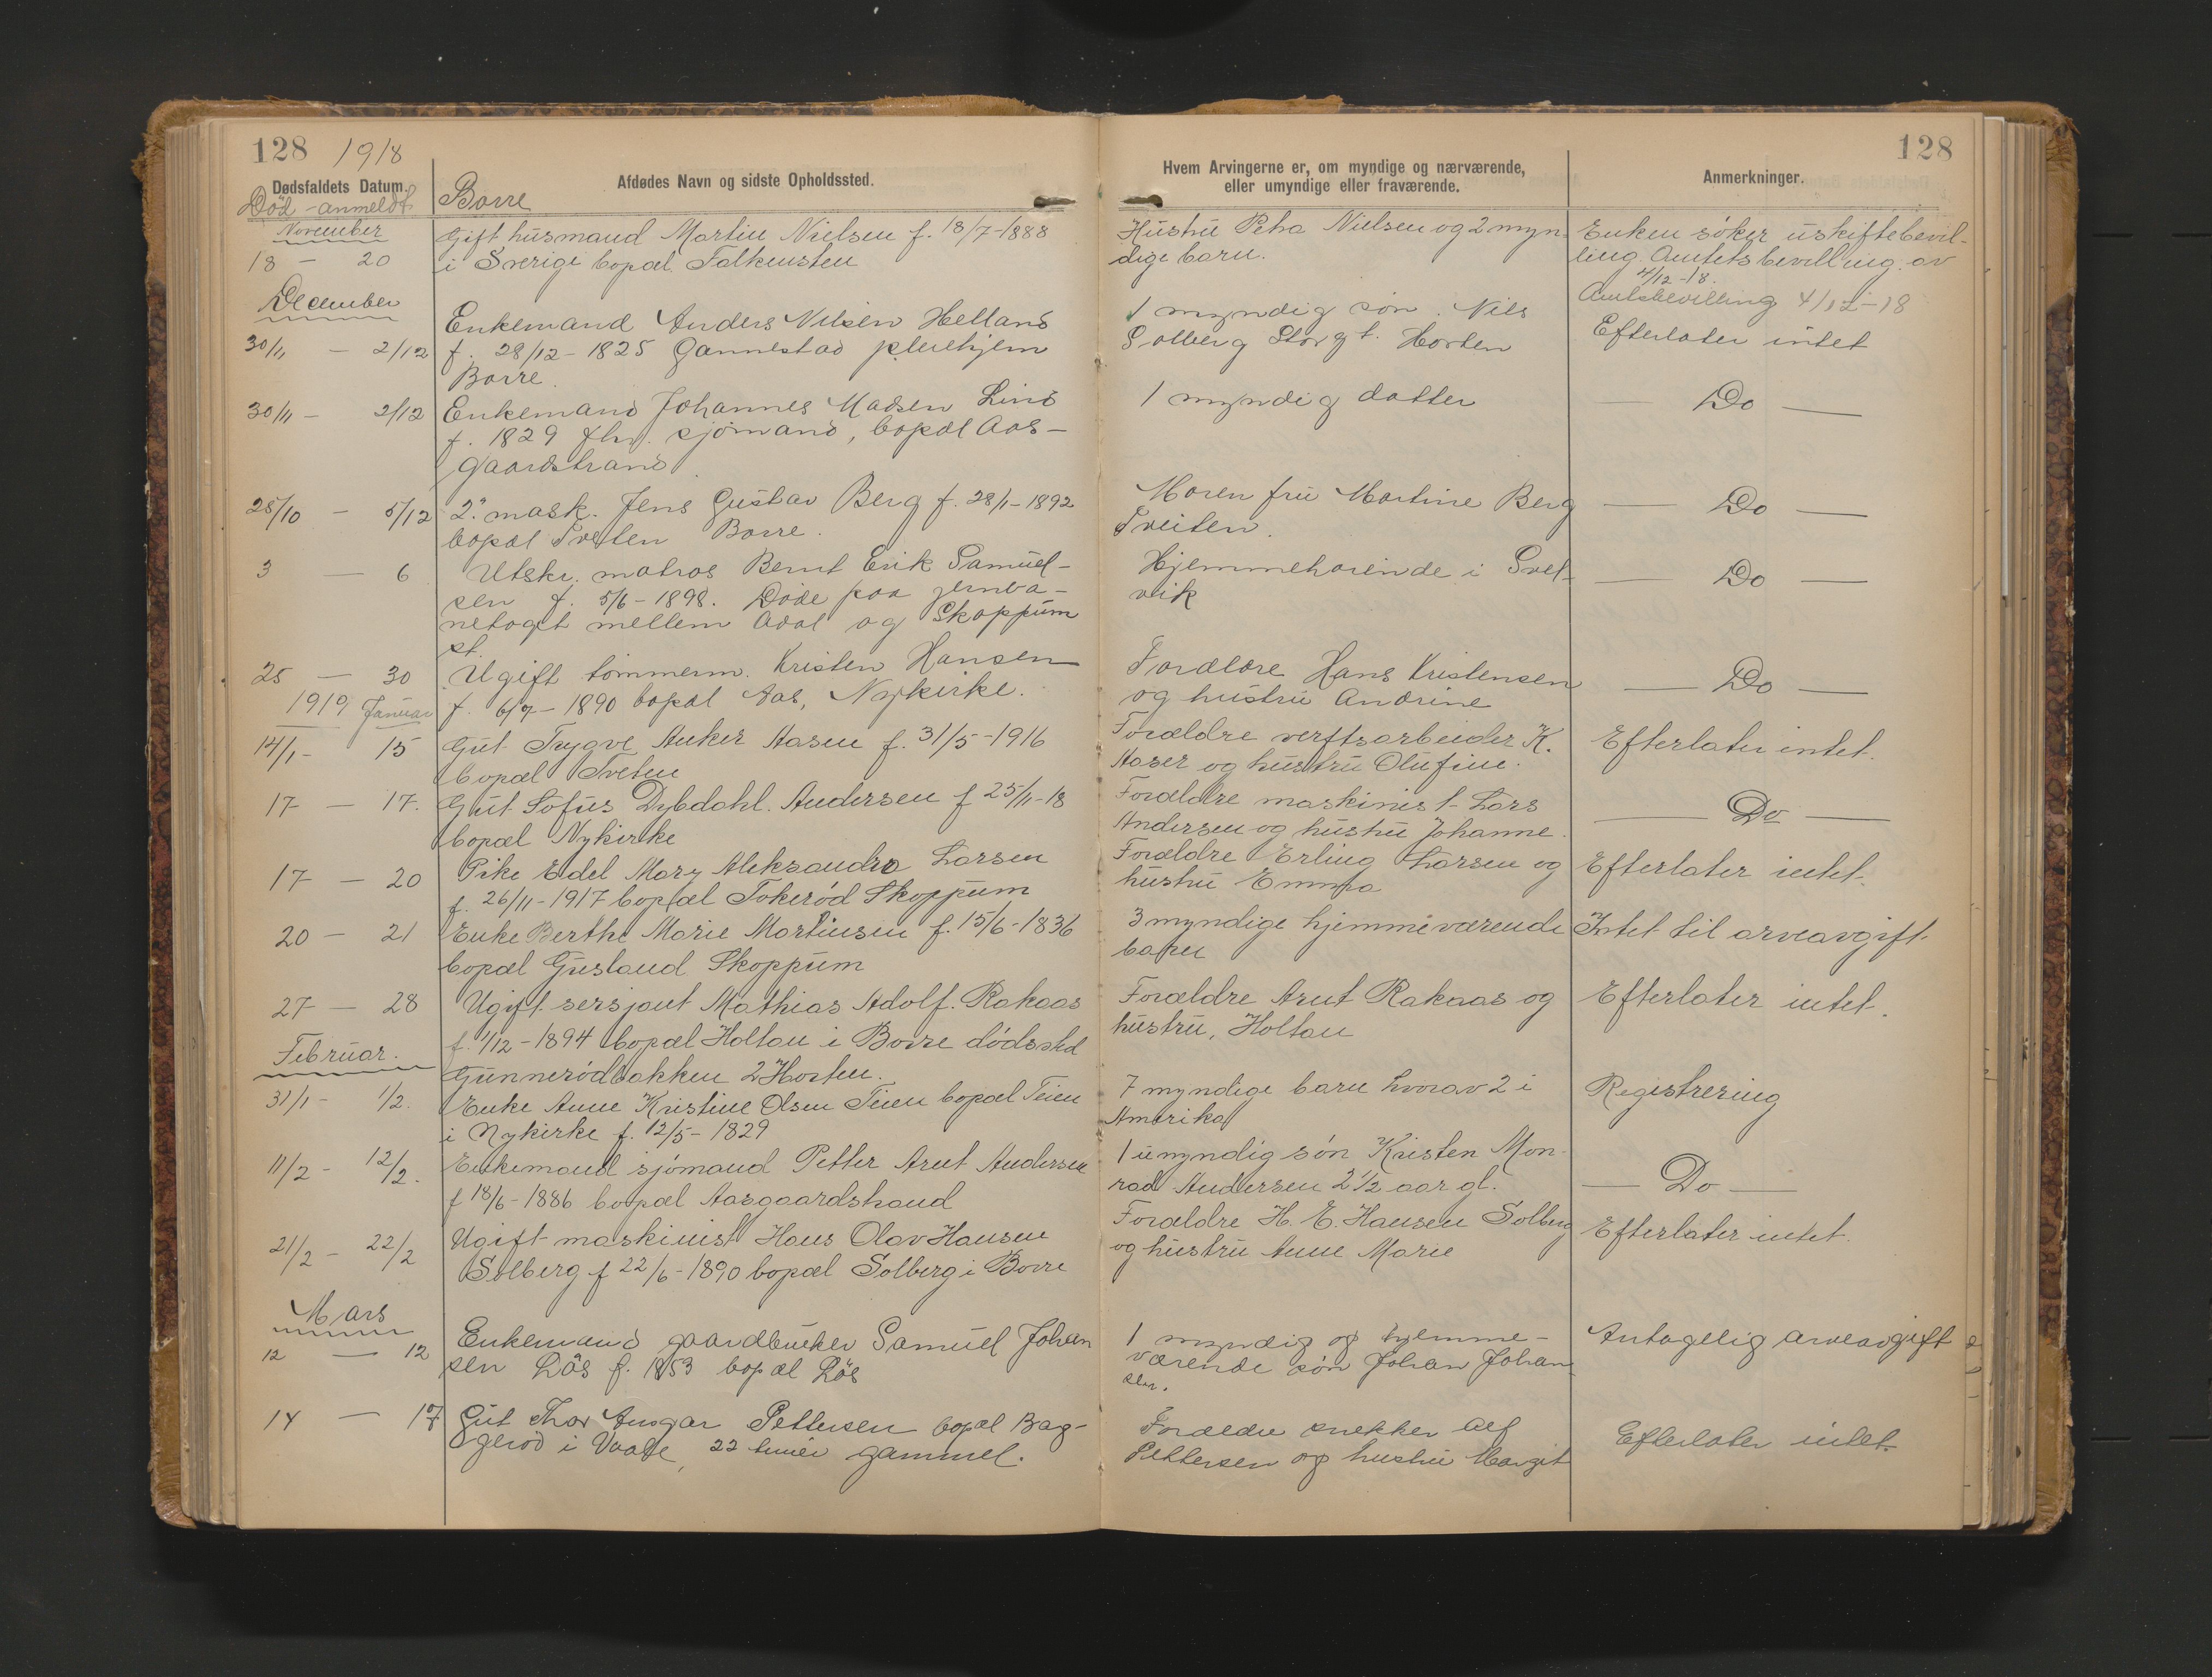 128 1918
128
Dødsfaldets Datum.
Afdødes Navn og sidste Opholdssted.
Hvem Arvingerne er, om myndige og nærværende,
eller umyndige eller fraværende.
Anmerkninger.
Död - anmeldt
Borre
November
18 - 20
Gift husmand Martin Nielsen f. 18/7-1888
i Sverige bopæl Falkensten
Hustru Petra Nielsen og 2 myn-
dige barn.
Enken søker uskiftebevil-
ling. Amtets bevilling av
4/12-18.
Amtsbevilling 4/12-18
December
30/11 - 2/12
Enkemand Anders Nilsen Helland
f. 28/12-1825 Gannestad pleiehjem
Borre.
1 myndig søn. Nils
Solberg Storgt. Horten
Efterlater intet
30/11 - 2/12
Enkemand Johannes Madsen Lind
f. 1829 fhv. sjømand, bopæl Aas-
gaardstrand
1 myndig datter
— Do —
28/10 - 5/12
2. mask. Jens Gustav Berg f. 28/1-1892
bopæl Tveten Borre.
Moren fru Martine Berg
Tveiten.
— Do —
3 - 6
Utskr. matros Bernt Erik Samuel-
sen f. 5/6-1898. Døde paa jernba-
netoget mellem Adal og Skoppum
st.
Hjemmehørende i Svel-
vik
— Do —
25 - 30
Ugift tømmerm. Kristen Hansen
f. 6/7-1890 bopæl Aas, Nykirke.
Forældre Hans Kristensen
og hustru Andrine
— Do —
1919 Januar
14/1 - 15
Gut Trygve Anker Aasen f. 31/5-1916
bopæl Tveten
Forældre verftsarbeider K.
Aasen og hustru Olufine.
Efterlater intet.
17 - 17.
Gut Sofus Dybdahl Andersen f 25/11-18
bopæl Nykirke
Forældre maskinist Lars
Andersen og hustru Johanne.
— Do —
17 - 20
Pike Edel Mary Aleksandra Larsen
f. 26/11-1917 bopæl Tokerød Skoppum
Forældre Erling Larsen og
hustru Emma
Efterlater intet.
20 - 21
Enke Berthe Marie Martinsen f. 15/6-1836
bopæl Gusland Skoppum
3 myndige hjemmeværende
barn
Intet til arveavgift.
27 - 28
Ugift sersjant Mathias Adolf Rakaas
f. 1/12-1894 bopæl Holtan i Borre dødssted
Gunnerødbakken 2 Horten.
Forældre Arnt Rakaas og
hustru, Holtan
Efterlater intet.
Februar.
31/1 - 1/2.
Enke Anne Kristine Olsen Teien bopæl Teien
i Nykirke f. 12/5-1829
7 myndige barn hvorav 2 i
Amerika
Registrering
11/2 - 12/2.
Enkemand sjømand Petter Arnt Andersen
f 18/6-1886 bopæl Aasgaardstrand
1 umyndig søn Kristen Mon-
rad Andersen 2 1/2 aar gl.
— Do —
21/2 - 22/2
Ugift maskinist Hans Olav Hansen
Solberg f 22/6-1890 bopæl Solberg i Borre
Forældre H. E. Hansen Solberg
og hustru Anne Marie
Efterlater intet.
Mars
12 - 12
Enkemand gaardbruker Samuel Johan
sen Løs f. 1853 bopæl Løs
1 myndig og hjemme-
værende søn Johan Johan
sen.
Antagelig arveavgift
14 - 17
Gut Thor Ansgar Pettersen bopæl Bag-
gerød i Vaale, 22 timer gammel.
Forældre snekker Alf
Pettersen og hustru Margit
Efterlater intet.